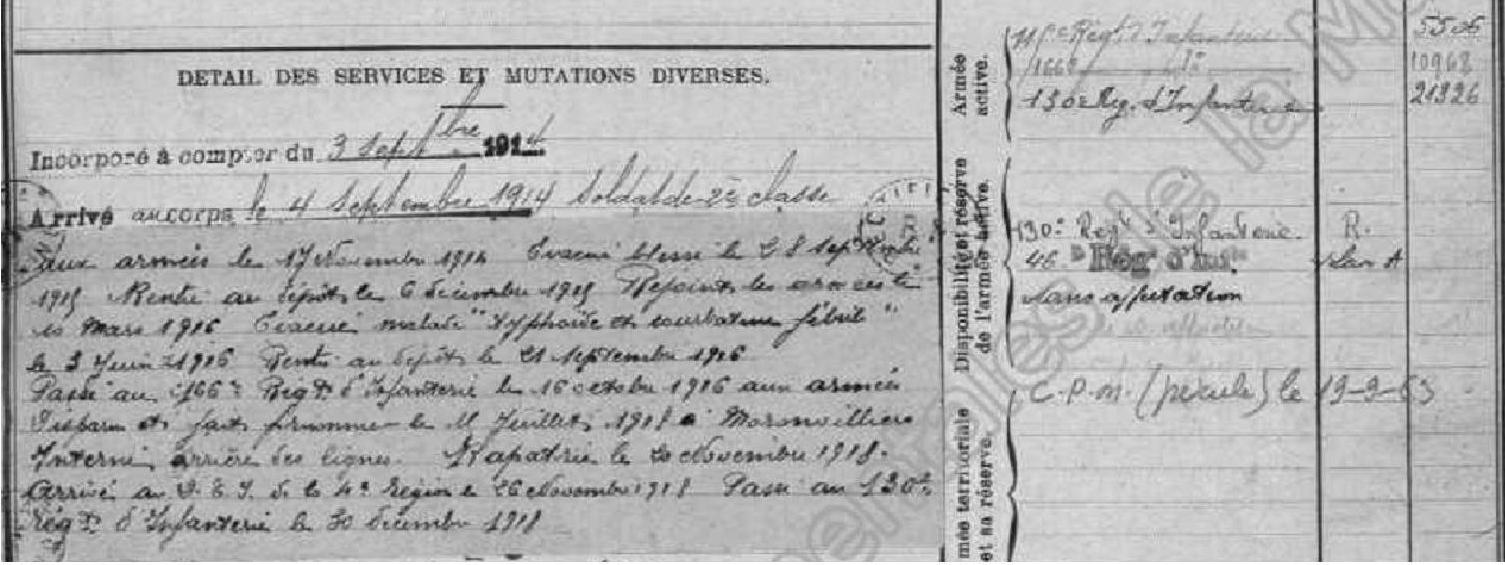 DETAIL DES SERVICES ET MUTATIONS DIVERSES.
Incorporé à compter du 3 Septbre 1914
Arrivé au corps le 4 Septembre 1914 Soldat de 2e classe
aux armées le 17 Novembre 1914 Evacué blessé le 28 Septembre
1915 Rentré au dépôt le 6 décembre 1915 Rejoint les armées le
10 Mars 1916 Evacué malade "typhoïde et courbature fébrile"
le 3 Juin 1916 Rentré au dépôt le 21 Septembre 1916
Passé au 166e Regt d'Infanterie le 16 octobre 1916 aux armées
Disparu et fait prisonnier le 11 Juillet 1917 à Moronvilliers
Interné arrière des lignes. Rapatrié le 20 Novembre 1918.
Arrivé au D. E. I. de la 4e Région le 26 Novembre 1918 Passé au 130e
Régt d'Infanterie le 30 décembre 1918
Armée
active.
Regt d'Infanterie
166e do
130e Reg. d'Infanterie
10968
21326
Disponibilité et réserve
de l'armée active.
130e Regt d'Infanterie. R.
46 Rég d'Inf
sans affectation
mée territoriale
et sa réserve.
C.P.M. (pécule) le 19-9-63